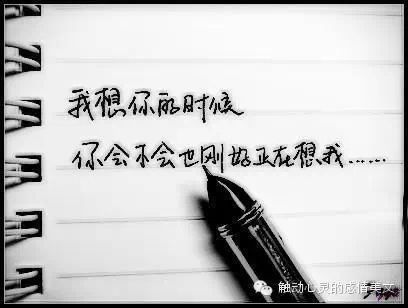 我想你的时候
你会不会也刚好正在想我……
触动心灵的感情美文